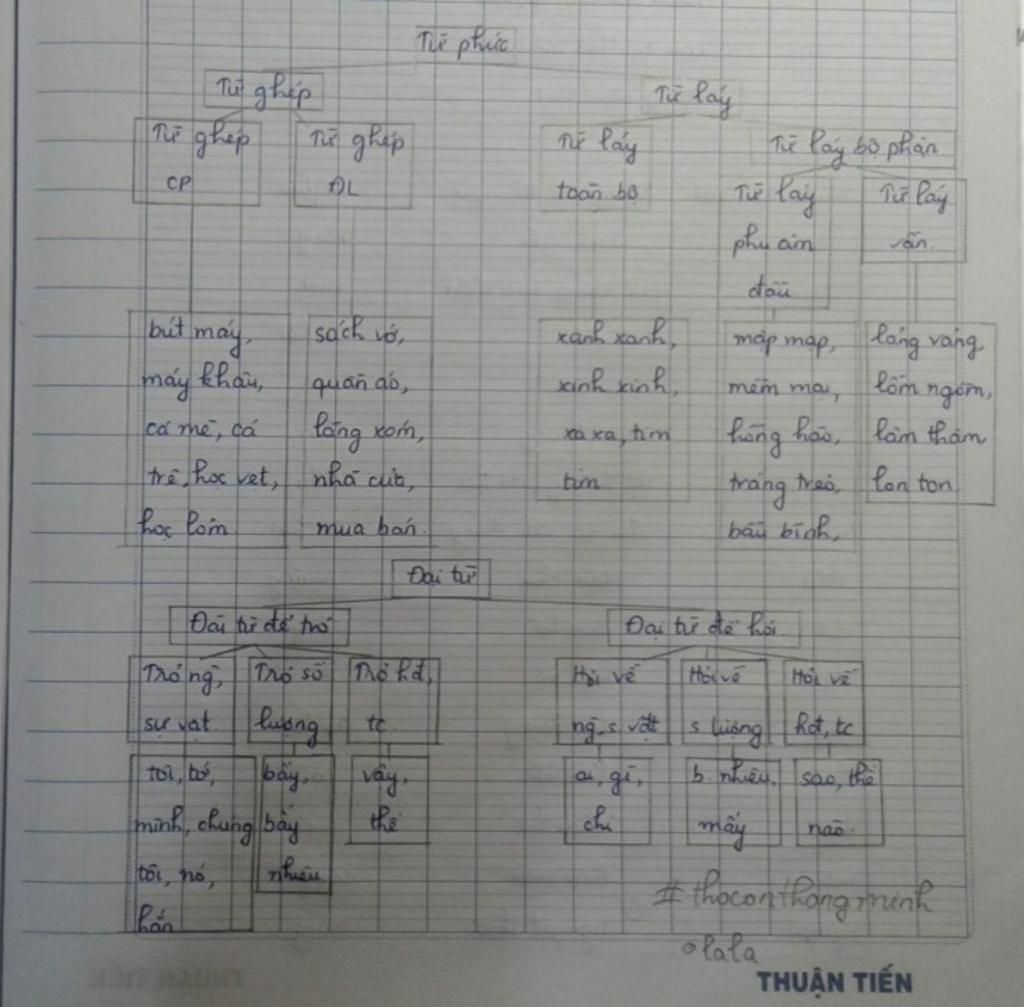 Từ phức
Từ ghép
Từ láy
Từ ghép CP
Từ ghép ĐL
Từ láy toàn bộ
Từ láy bộ phận
Từ láy phụ âm đầu
Từ láy vần.
bút máy,
máy khâu,
cá mè, cá
trê, học vẹt,
học lỏm
sách vở,
quần áo,
làng xóm,
nhà cửa,
mua bán.
xanh xanh,
xinh xinh,
xa xa, tim
tim
mập mạp,
mềm mại,
hồng hào,
trắng trẻo,
bầu bĩnh,
lảng vảng,
lổm ngổm,
lẩm thẩm
lon ton
Đại từ
Đại từ để trỏ
Đại từ để hỏi
Trỏ ng,
sự vật
Trỏ số
lượng
Trỏ hđ,
tc
Hỏi về
ng, s vật
Hỏi về
s lượng
Hỏi về
hđ, tc
tôi, tớ,
mình, chúng
tôi, nó,
hắn
bấy,
bấy
nhiêu
vậy,
thế
ai, gì,
chi
b. nhiêu,
mấy
sao, thế
nào.
# thoconthongminh
lala
THUẬN TIẾN